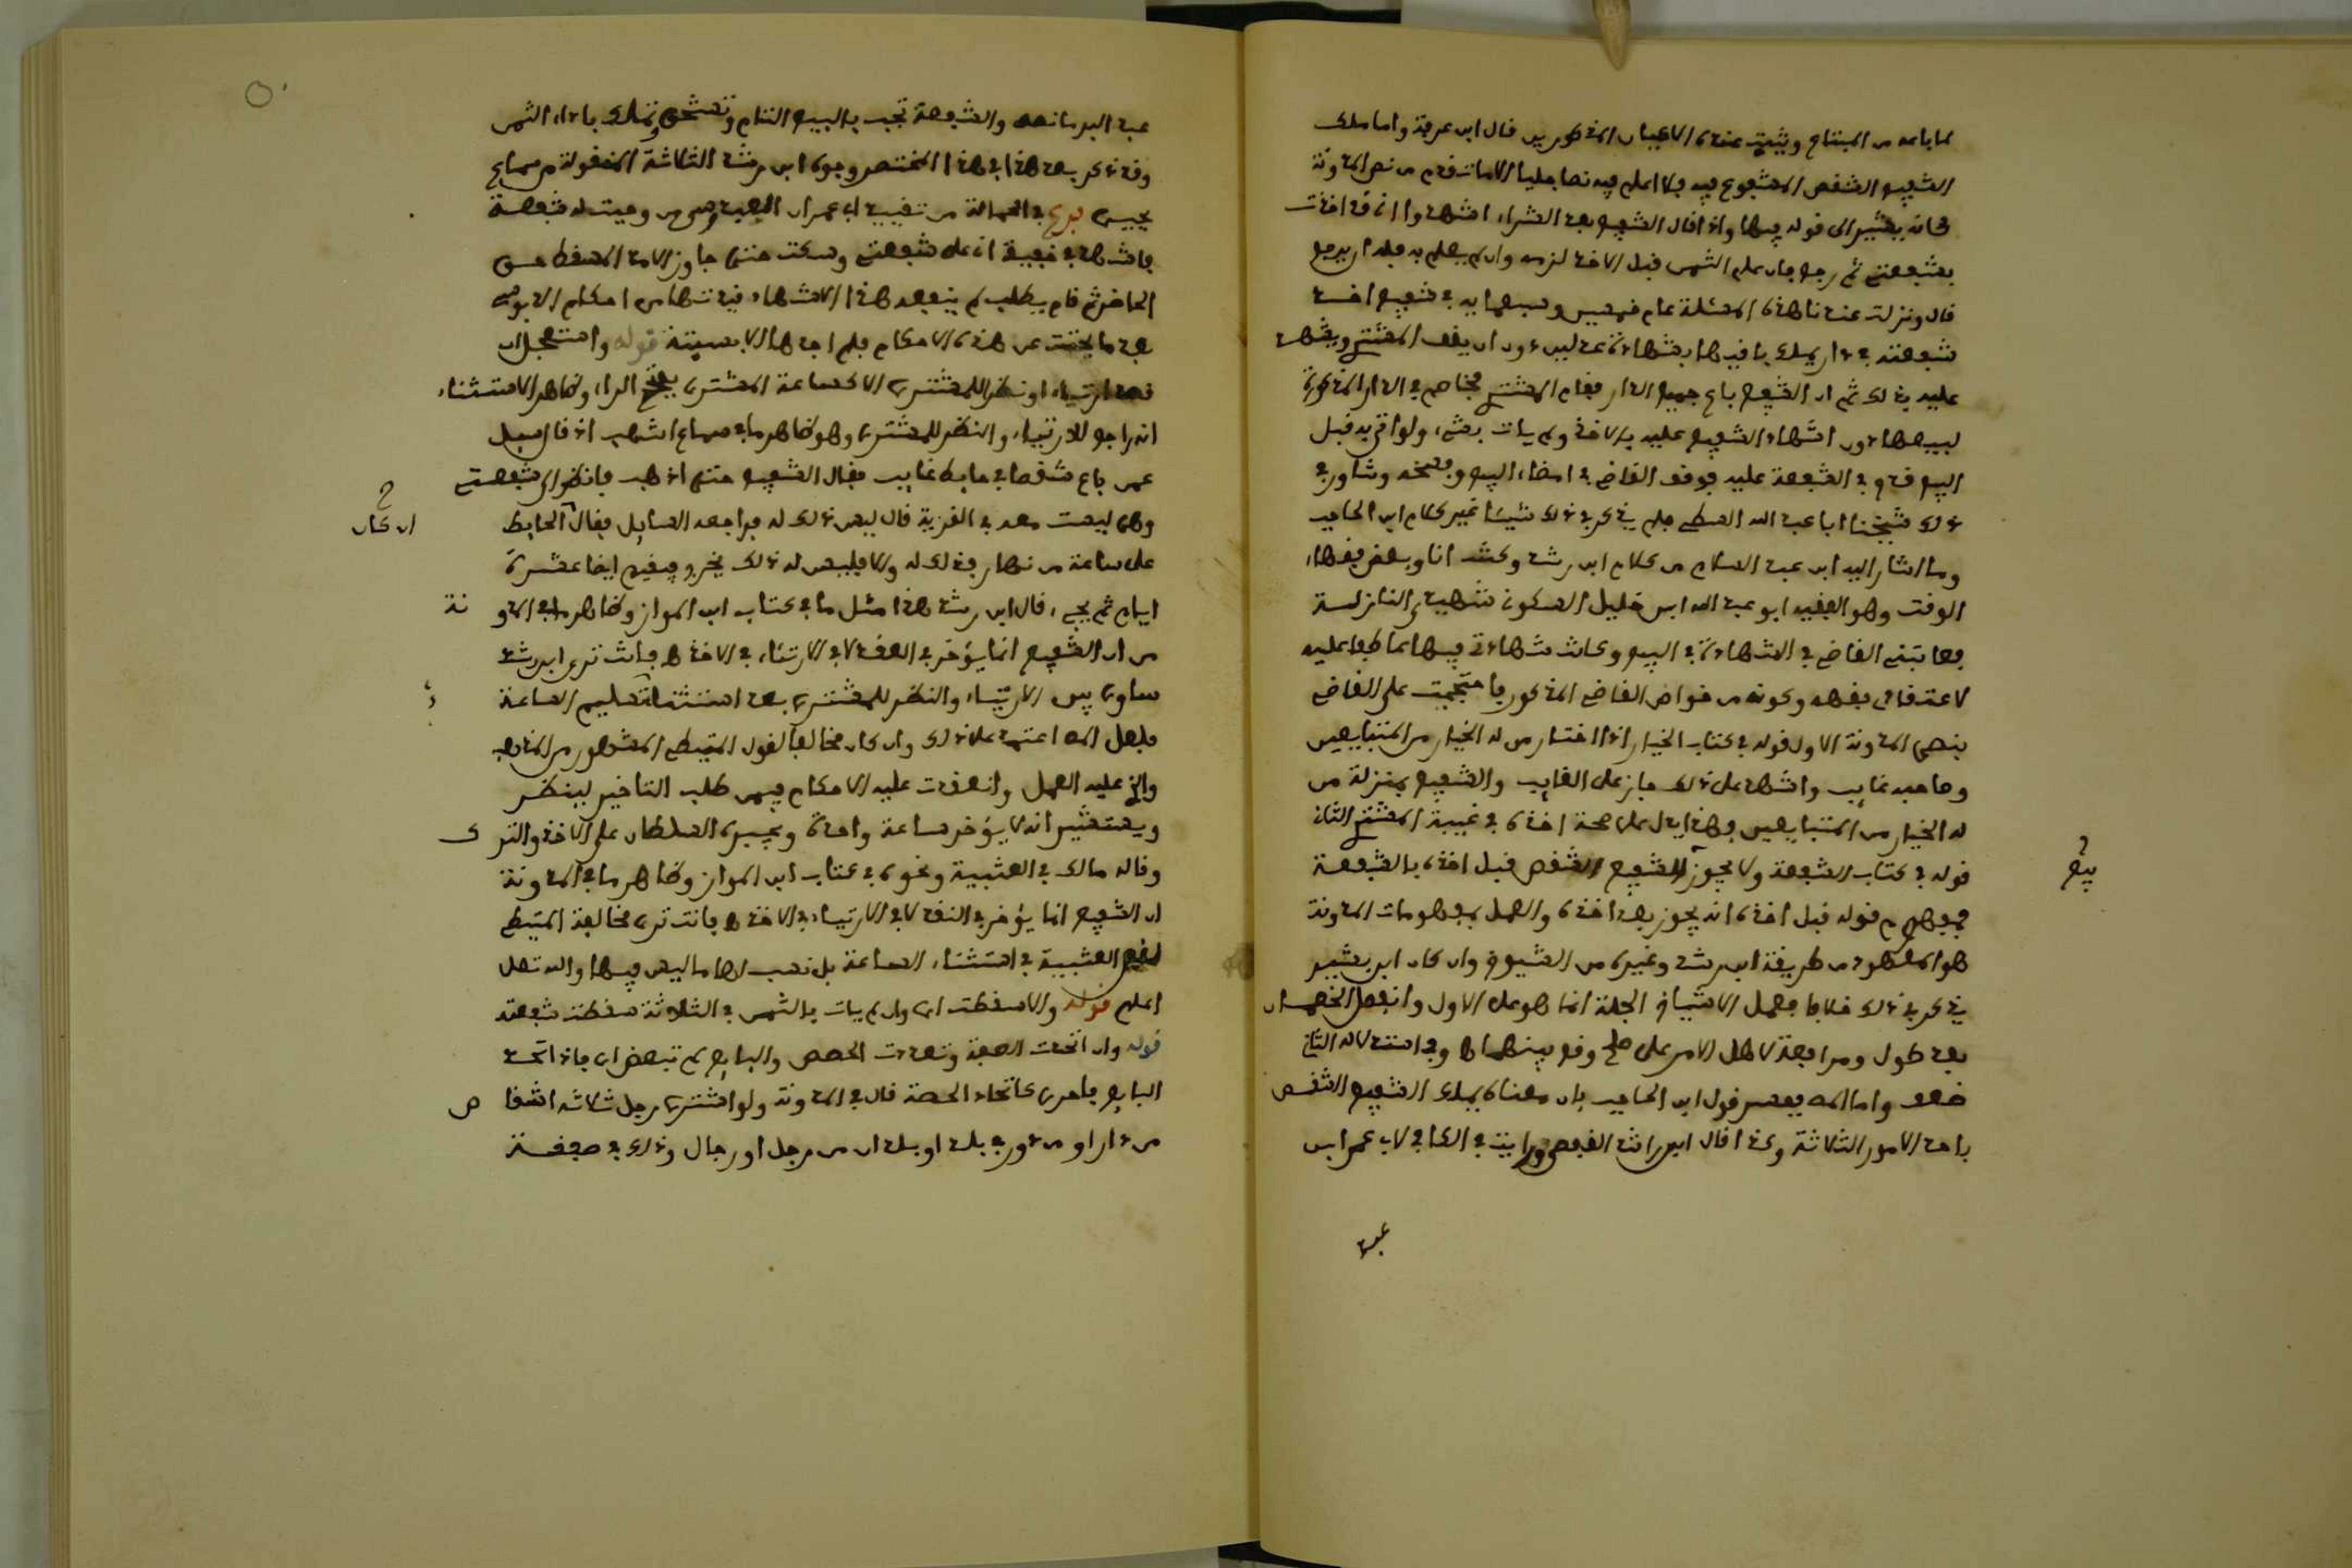 لما باعه من المبتاع ويثبت عنده الاعيان المذكورين قال ابن عرفة واما ملك
الشفيع الشقص المشفوع فيه فلا اعلم فيه نصا جليا الا ما تقدم من نص المدونة
كانه يشير الى قوله فيها واذا قال الشفيع بعد الشراء اشهدوا اني قد اخذت
بشفعتي ثم رجع فان علم الثمن قبل الاخذ لزمه وان لم يعلم به فله ان يرجع
قال ونزلت عندنا هذه المسئلة عام خمسين وسبعماية في شفيع اخذ
شفعته في دار يملك باقيها بشهادة عدلين دون ان يقف المشتري ويشهد
عليه بذلك ثم ان الشفيع باع جميع الدار فقام المشتري يخاصم في الدار المذكورة
لبيعها دون اشهاد الشفيع عليه بالاخذ ولم يات بشيء ولو اتى به قبل
البيع قدم في الشفعة عليه فوقف القاضي في امضاء البيع وفسخه وشاور في
ذلك شيخنا ابا عبد الله السطي فلم يذكر في ذلك شيئا غير كلام ابن الحاجب
وما اشار اليه ابن عبد السلام من كلام ابن رشد وكنت انا وبعض فقهاء
الوقت وهو الفقيه ابو عبد الله ابن خليل السكوني شهيدي النازلة
فعاتبني القاضي في الشهادة في البيع وكانت شهادتي فيها عاطفا عليه
لاعتقادي فقهه وكونه من خواص القاضي المذكور فاحتججت على القاضي
بنص المدونة الاول قوله في كتاب الخيار اذا اختار من له الخيار من المتبايعين
وصاحبه غايب واشهد على ذلك جاز على الغايب والشفيع بمنزلة من
له الخيار من المتبايعين فهذا يدل على صحة اخذه في غيبة المشتري الثاني
قوله في كتاب الشفعة ولا يجوز للشفيع الشقص قبل اخذه بالشفعة
بيع
فمفهوم قوله قبل اخذه انه يجوز بعد اخذه والعمل بمفهومات المدونة
هو المعهود من طريقة ابن رشد وغيره من الشيوخ وان كان ابن بشير
يذكر في ذلك خلافا فعمل الاشياخ الجلة انما هو على الاول وانفصل الخصمان
بعد طول ومرافعة لاهل الامر على صلح وقع بينهما اه وفي استدلاله الثاني
ضعف واما المص ففسر قول ابن الحاجب بان معناه يملك الشفيع الشقص
باحد الامور الثلاثة وكذا قال ابن راشد القفصي ورايت في الكافي لابي عمر ابن
عبد
عبد البر ما نصه والشفعة تجب بالبيع التام وتستحق وتملك باداء الثمن
وقد ذكر بعد هذا في هذا المختصر وجوه ابن رشد الثلاثة المنقولة من سماع
يحيى فرع في الحمالة من تقييد ابي عمران الفاسي ومن وجبت له شفعة
فاشهد في خفية انه على شفعته وسكت حتى جاوز الامد المسقط لحق
الحاضر ثم قام يطلب لم ينفعه هذا الاشهاد قيدتها من احكام الابوصي
بعد ما بحثت عن هذه الاحكام فلم اجدها الا بمدينة قوله واستعجل ان
قصد ارتياء او نظر للمشتري الا كساعة المشتري بفتح الراء وظاهر الاستثناء
انه راجع للارتياء والنظر للمشتري وهو ظاهر ما في سماع اشهب اذ قال سئل
عمن باع شقصا في حايط غايب فقال الشفيع حتى اذهب فانظر الى شفعتي
وهي ليست معه في القرية قال ليس ذلك له فراجعه السايل فقال الحايط
ان كان
على ساعة من نهار فذلك له والا فليس له ذلك يخرج فيقيم ايضا عشرة
ايام ثم يجيء قال ابن رشد هذا مثل ما في كتاب ابن المواز وظاهر ما في المدو نة
من ان الشفيع انما يؤخر في النقد لا في الارتئاء في الاخذ اه فانت ترى ابن رشد
ساوى بين الارتياء والنظر للمشتري بعد استثنا تسليم الساعة
فلعل المص اعتمد على ذلك وان كان مخالفا لقول المتيطي المشهور من المذهب
والذي عليه العمل وانعقدت عليه الاحكام فيمن طلب التاخير لينظر
ويستشير انه لا يؤخر ساعة واحدة ويجبره السلطان على الاخذ والتر ك
وقاله مالك في العتبية ونحوه في كتاب ابن المواز وظاهر ما في المدونة
ان الشفيع انما يؤخر في النقد لا في الارتياء في الاخذ اه فانت ترى مخالفة المتيطي
لنص العتبية في استثناء الساعة بل نسب لها ما ليس فيها والله تعلى
اعلم قوله والا سقطت اي وان لم يات بالثمن في الثلاثة سقطت شفعته
قوله وان اتحدت الصفقة وتعددت الحصص والبايع لم تبعض اي فاذا اتحد
البايع فاحرى كاتحاد الحصة قال في المدونة ولو اشترى رجل ثلاثة اشقا ص
من دار او من دور في بلد او بلدان من رجل او رجال وذلك في صفقة